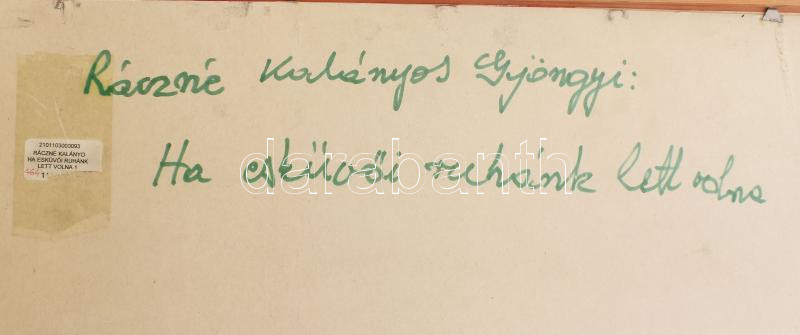 Ráczné Kalányos Gyöngyi:
Ha esküvői ruhánk lett volna
2101103000093
RÁCZNÉ KALÁNYO
HA ESKÜVŐI RUHÁNK
LETT VOLNA 1
darabanth